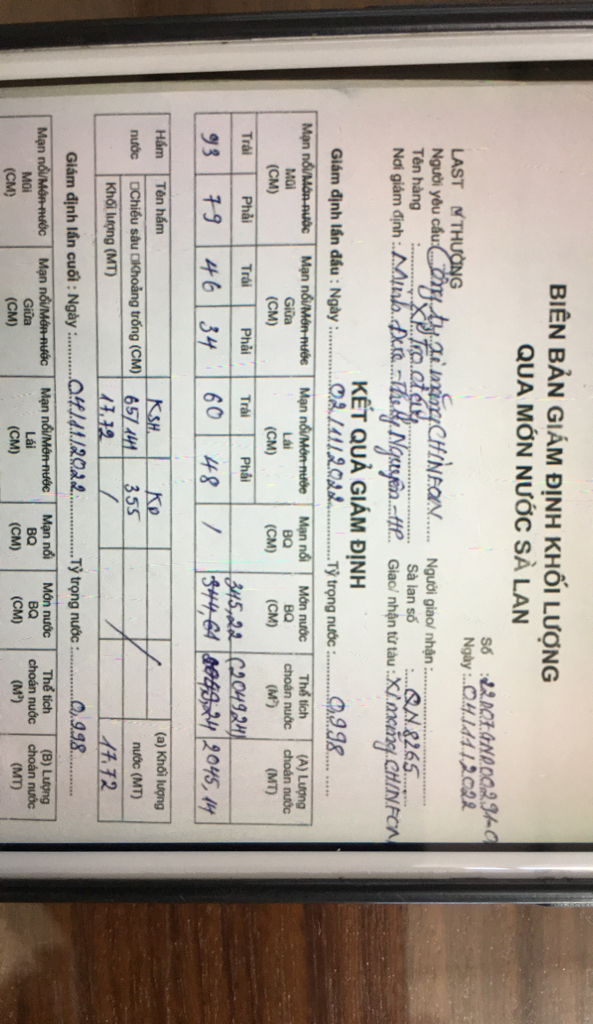 BIÊN BẢN GIÁM ĐỊNH KHỐI LƯỢNG
QUA MÓN NƯỚC SÀ LAN
Số : 22D07GND00291-0
Ngày : 04/11/2022
LAST ☑ THƯỜNG
Người yêu cầu: Công ty xi măng CHINFON Người giao/ nhận :
Tên hàng : Sà lan số : QN 8265
Nơi giám định : Minh Đức - Thủy Nguyên - HP Giao/ nhận từ tàu : Xi măng CHINFON
KẾT QUẢ GIÁM ĐỊNH
Giám định lần đầu : Ngày : 02/11/2022 Tỷ trọng nước : 0,998
Mạn nổi/Món nước Mũi (CM) Mạn nổi/Món nước Giữa (CM) Mạn nổi/Món nước Lái (CM) Mạn nổi BQ (CM) Món nước BQ (CM) Thể tích choán nước (M³) (A) Lượng choán nước (MT)
Trái Phải Trái Phải Trái Phải 345,22 (2049,24)
93 79 46 34 60 48 / 344,61 2049,24 2045,14
Hầm nước Tên hầm KSH KĐ (a) Khối lượng nước (MT)
☐Chiều sâu ☐Khoảng trống (CM) 65/141 355
Khối lượng (MT) 17.72 / 17.72
Giám định lần cuối : Ngày : 04/11/2022 Tỷ trọng nước : 0,998
Mạn nổi/Món nước Mũi (CM) Mạn nổi/Món nước Giữa (CM) Mạn nổi/Món nước Lái (CM) Mạn nổi BQ (CM) Món nước BQ (CM) Thể tích choán nước (M³) (B) Lượng choán nước (MT)